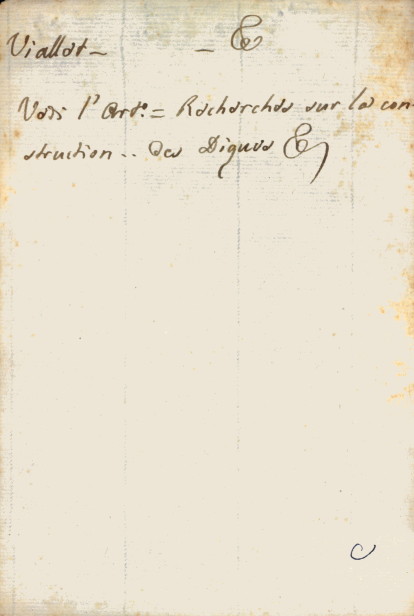 Viallet - - &
Vedi l'Art.° = Recherches sur la con-
struction .. des Digues &